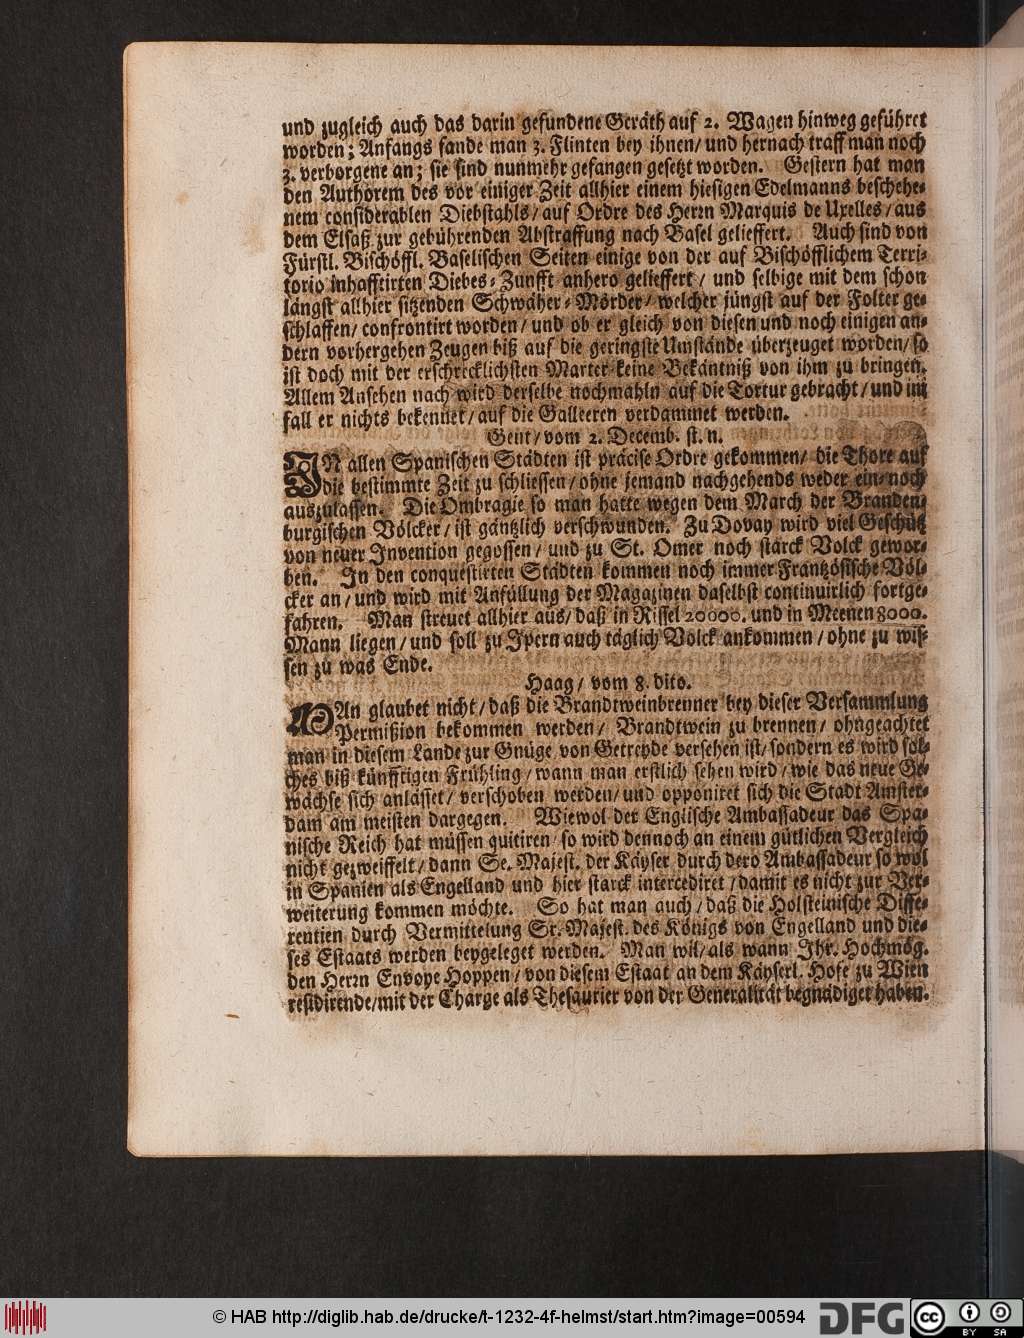 und zugleich auch das darin gefundene Geräth auf 2. Wagen hinweg geführet
worden; Anfangs fande man 3. Flinten bey ihnen/ und hernach traff man noch
3. verborgene an; sie sind nunmehr gefangen gesetzt worden. Gestern hat man
den Authorem des vor einiger Zeit allhier einem hiesigen Edelmanns beschehe-
nem considerablen Diebstahls/ auf Ordre des Herrn Marquis de Uxelles/ aus
dem Elsaß zur gebührenden Abstraffung nach Basel gelieffert. Auch sind von
Fürstl. Bischöffl. Baselischen Seiten einige von der auf Bischöfflichem Terri-
torio inhafftirten Diebes-Zunfft anhero gelieffert/ und selbige mit dem schon
längst allhier sitzenden Schwäher-Mörder/ welcher jüngst auf der Folter ge-
schlaffen/ confrontirt worden/ und ob er gleich von diesen und noch einigen an-
dern vorhergehen Zeugen biß auf die geringste Umstände überzeuget worden/ so
ist doch mit der erschrecklichsten Marter keine Bekäntniß von ihm zu bringen.
Allem Ansehen nach wird derselbe nochmahln auf die Tortur gebracht/ und im
fall er nichts bekennet/ auf die Galleeren verdammet werden.
Gent/ vom 2. Decemb. st. n.
IN allen Spanischen Städten ist präcise Ordre gekommen/ die Thore auf
die bestimmte Zeit zu schliessen/ ohne jemand nachgehends weder ein- noch
auszulassen. Die Ombragie so man hatte wegen dem March der Branden-
burgischen Völcker/ ist gäntzlich verschwunden. Zu Dovay wird viel Geschütz
von neuer Invention gegossen/ und zu St. Omer noch starck Volck gewor-
ben. In den conquestirten Städten kommen noch immer Frantzösische Völ-
cker an/ und wird mit Anfüllung der Magazinen daselbst continuirlich fortge-
fahren. Man streuet allhier aus/ daß in Rissel 20000. und in Meenen 8000.
Mann liegen/ und soll zu Ipern auch täglich Volck ankommen/ ohne zu wis-
sen zu was Ende.
Haag/ vom 8. dito.
MAn glaubet nicht/ daß die Brandtweinbrenner bey dieser Versammlung
Permißion bekommen werden/ Brandtwein zu brennen/ ohngeachtet
man in diesem Lande zur Gnüge von Getreyde versehen ist/ sondern es wird sol-
ches biß künfftigen Frühling/ wann man erstlich sehen wird/ wie das neue Ge-
wächse sich anlässet/ verschoben werden/ und opponiret sich die Stadt Amster-
dam am meisten dargegen. Wiewol der Englische Ambassadeur das Spa-
nische Reich hat müssen quitiren/ so wird dennoch an einem gütlichen Vergleich
nicht gezweiffelt/ dann Se. Majest. der Käyser durch dero Ambassadeur so wol
in Spanien als Engelland und hier starck intercediret/ damit es nicht zur Ver-
weiterung kommen möchte. So hat man auch/ daß die Holsteinische Diffe-
rentien durch Vermittelung Sr. Majest. des Königs von Engelland und die-
ses Estaats werden beygeleget werden. Man wil/ als wann Ihr. Hochmög.
den Herrn Envoye Hoppen/ von diesem Estaat an dem Käyserl. Hofe zu Wien
residirende/ mit der Charge als Thesaurier von der Generalität begnädiget haben.
© HAB http://diglib.hab.de/drucke/t-1232-4f-helmst/start.htm?image=00594
DFG
cc BY SA